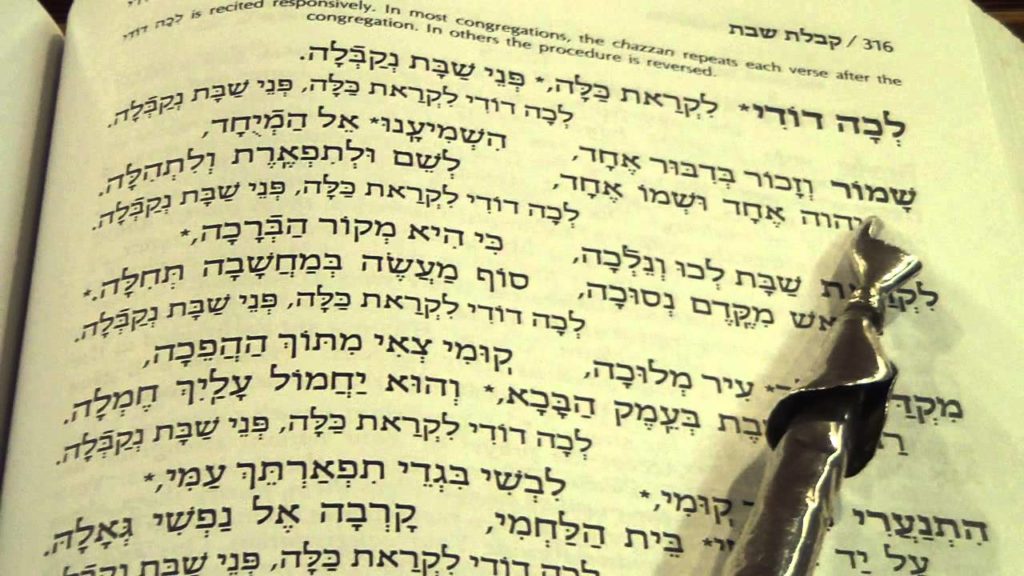 316 / קבלת שבת
לכה דודי is recited responsively. In most congregations, the chazzan repeats each verse after the
congregation. In others the procedure is reversed.
לְכָה דוֹדִי* לִקְרַאת כַּלָּה,* פְּנֵי שַׁבָּת נְקַבְּלָה.
לְכָה דוֹדִי לִקְרַאת כַּלָּה, פְּנֵי שַׁבָּת נְקַבְּלָה.
שָׁמוֹר וְזָכוֹר בְּדִבּוּר אֶחָד, הִשְׁמִיעָנוּ* אֵל הַמְּיֻחָד,
יהוה אֶחָד וּשְׁמוֹ אֶחָד, לְשֵׁם וּלְתִפְאֶרֶת וְלִתְהִלָּה.
לְכָה דוֹדִי לִקְרַאת כַּלָּה, פְּנֵי שַׁבָּת נְקַבְּלָה.
שַׁבָּת לְכוּ וְנֵלְכָה, כִּי הִיא מְקוֹר הַבְּרָכָה,*
מִקֶּדֶם נְסוּכָה, סוֹף מַעֲשֶׂה בְּמַחֲשָׁבָה תְּחִלָּה.*
לְכָה דוֹדִי לִקְרַאת כַּלָּה, פְּנֵי שַׁבָּת נְקַבְּלָה.
עִיר מְלוּכָה, קוּמִי צְאִי מִתּוֹךְ הַהֲפֵכָה,
בְּעֵמֶק הַבָּכָא,* וְהוּא יַחֲמוֹל עָלַיִךְ חֶמְלָה.
לְכָה דוֹדִי לִקְרַאת כַּלָּה, פְּנֵי שַׁבָּת נְקַבְּלָה.
הִתְנַעֲרִי קוּמִי,* לִבְשִׁי בִּגְדֵי תִפְאַרְתֵּךְ עַמִּי,*
עַל יַד בֵּית הַלַּחְמִי, קָרְבָה אֶל נַפְשִׁי גְאָלָהּ.
לְכָה דוֹדִי לִקְרַאת כַּלָּה, פְּנֵי שַׁבָּת נְקַבְּלָה.